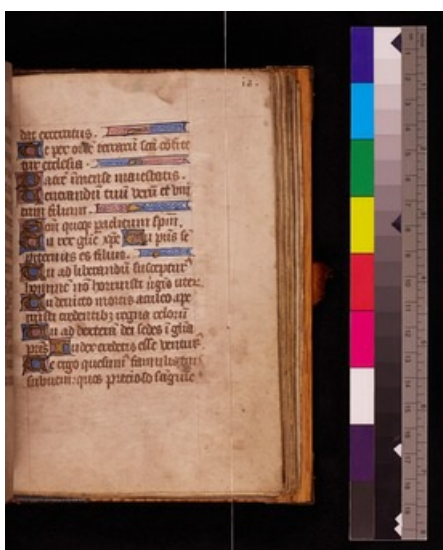 12.
dat exercitus.
Te per orbē terrarū scā cōfite
tur ecclesia.
Patrē īmense maiestatis.
Uenerandū tuū verū et vnī
cum filium.
Sm̄ quoqȝ paclitum spm̄.
Tu rex glīe xp̄e Tu pr̄is sē
piternus es filius.
Tu ad liberandū suscepturꝰ
hominē nō horruisti ūgīs uter.
Tu deuicto mortis aculeo ape
ruisti credentibꝫ regna celorū
Tu ad dexterā dei sedes ī glīa
pr̄is Iudex crederis esse venturꝰ
Te ergo quesumꝰ famulis tuis
subueni: quos precioso sāguīe